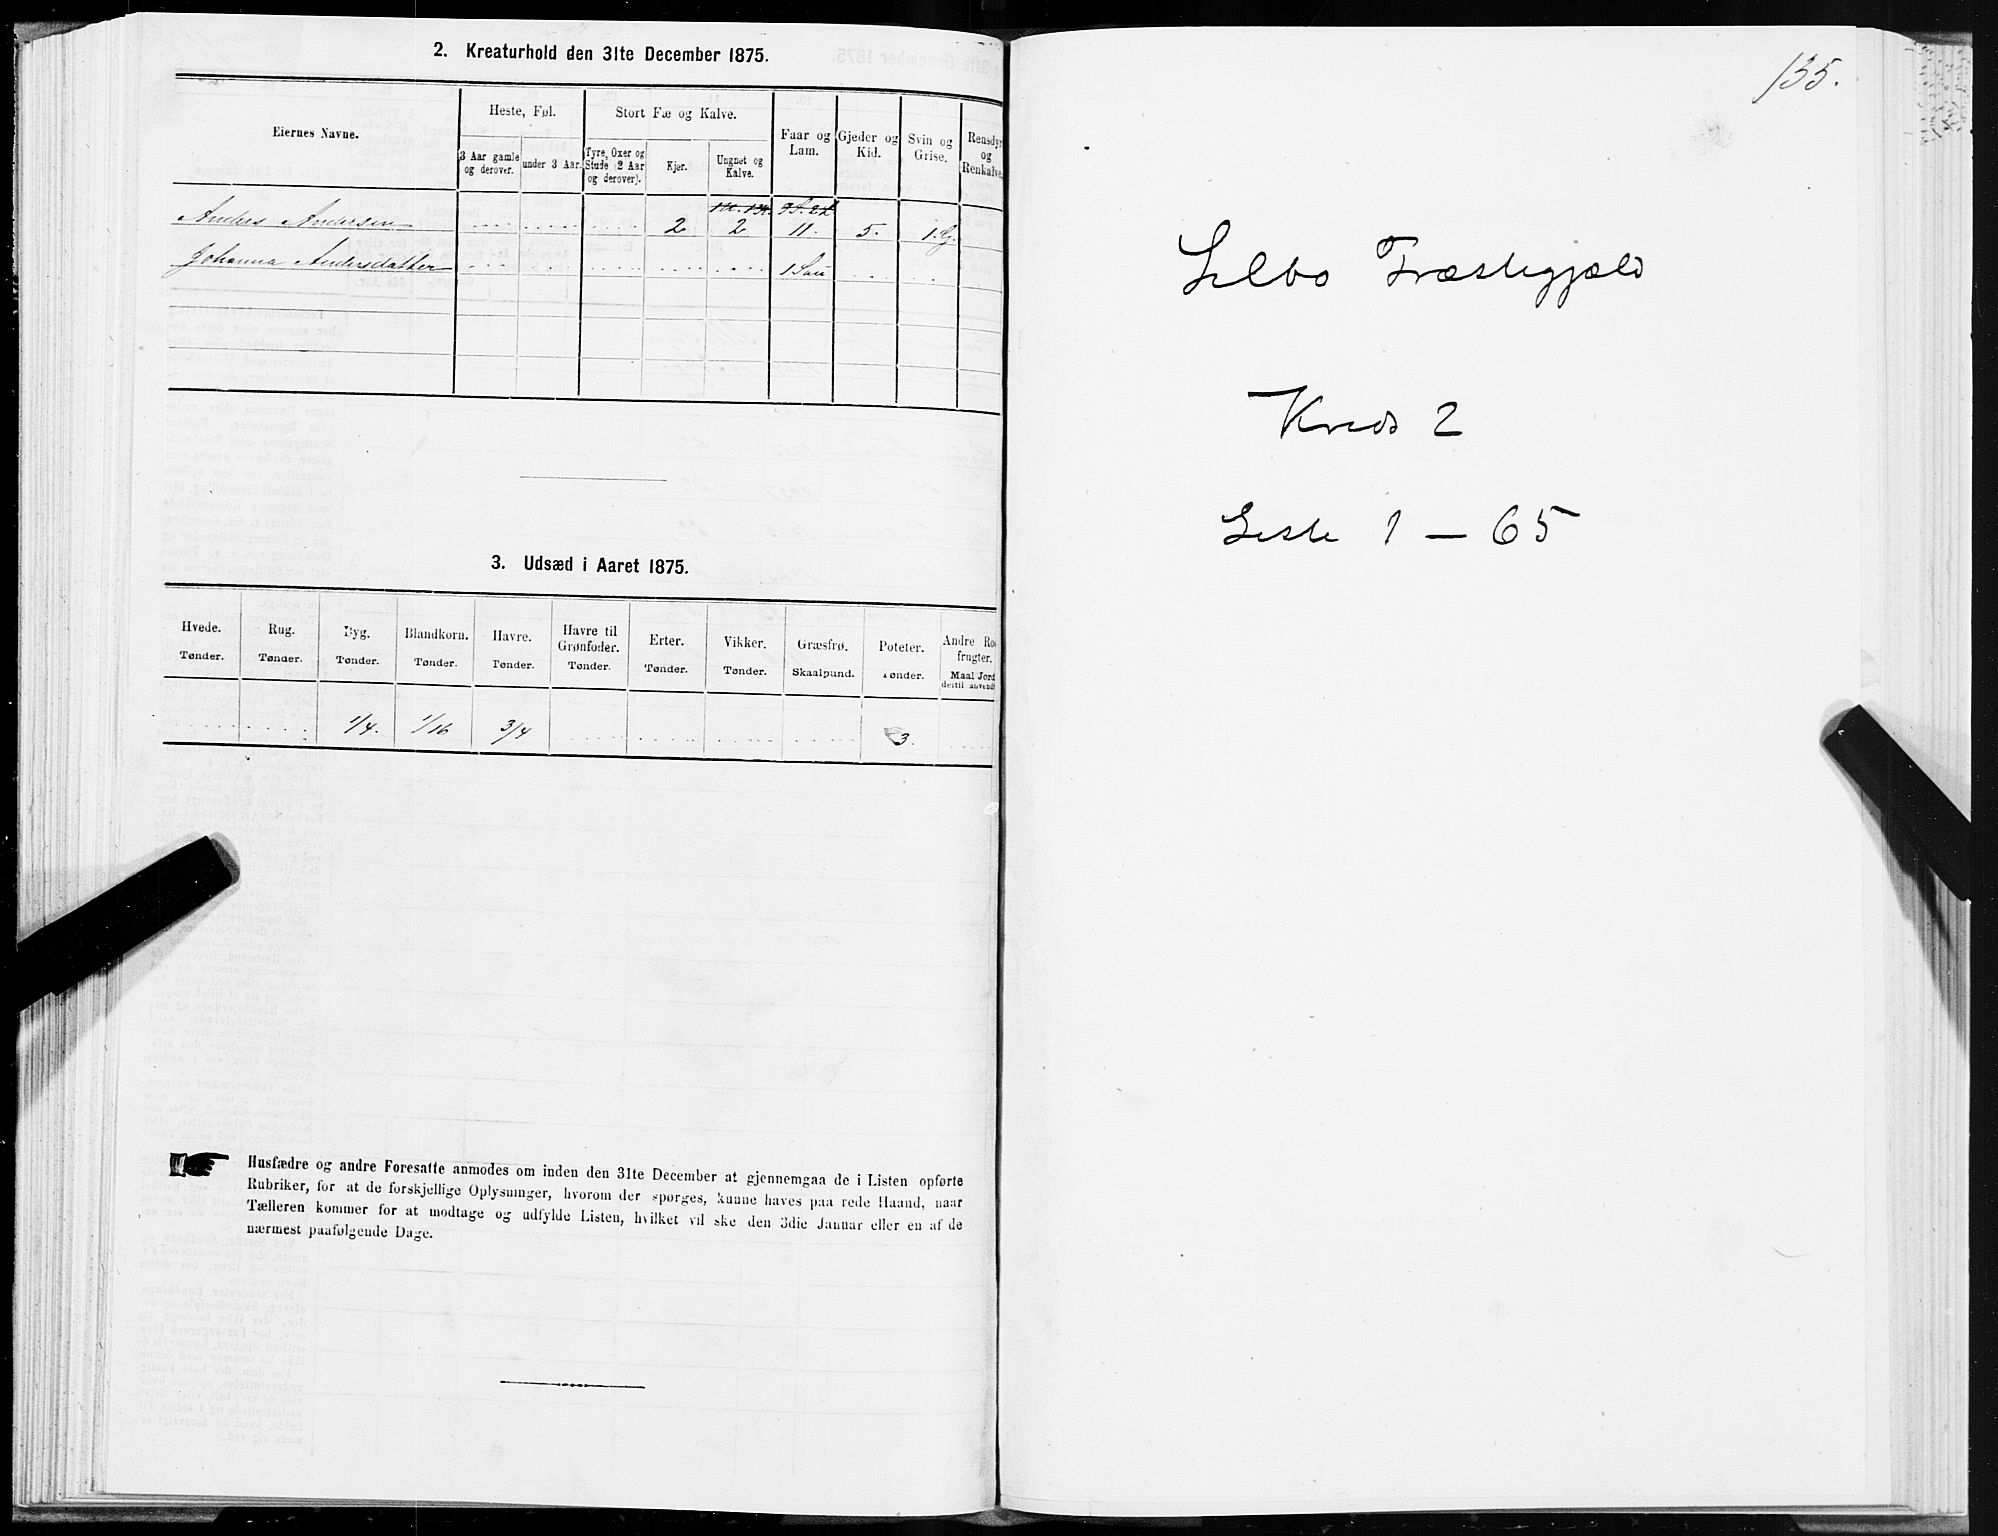 2. Kreaturhold den 31te December 1875.
Eiernes Navne.
Heste, Føl.
Stort Fæ og Kalve.
Faar og Lam.
Gjeder og Kid.
Svin og Grise.
Rensdyr og Renkalve.
3 Aar gamle og derover.
under 3 Aar.
Tyre, Oxer og Stude (2 Aar og derover).
Kjør.
Ungnøt og Kalve.
Anders Andersen 2 2 11. 5. 1 G.
Johanna Andersdatter 1 Sau
3. Udsæd i Aaret 1875.
Hvede. Rug. Byg. Blandkorn. Havre. Havre til Grønfoder. Erter. Vikker. Græsfrø. Poteter. Andre Ro frugter.
Tønder. Tønder. Tønder. Tønder. Tønder. Tønder. Tønder. Tønder. Skaalpund. Tønder. Maal Jord dertil anvendt
1/4. 1/16 3/4 3.
Husfædre og andre Foresatte anmodes om inden den 31te December at gjennemgaa de i Listen opførte
Rubriker, for at de forskjellige Oplysninger, hvorom der spørges, kunne haves paa rede Haand, naar
Tælleren kommer for at modtage og udfylde Listen, hvilket vil ske den 3die Januar eller en af de
nærmest paafølgende Dage.
135.
Selbo Præstegjæld
Kreds 2
Liste 1 — 65